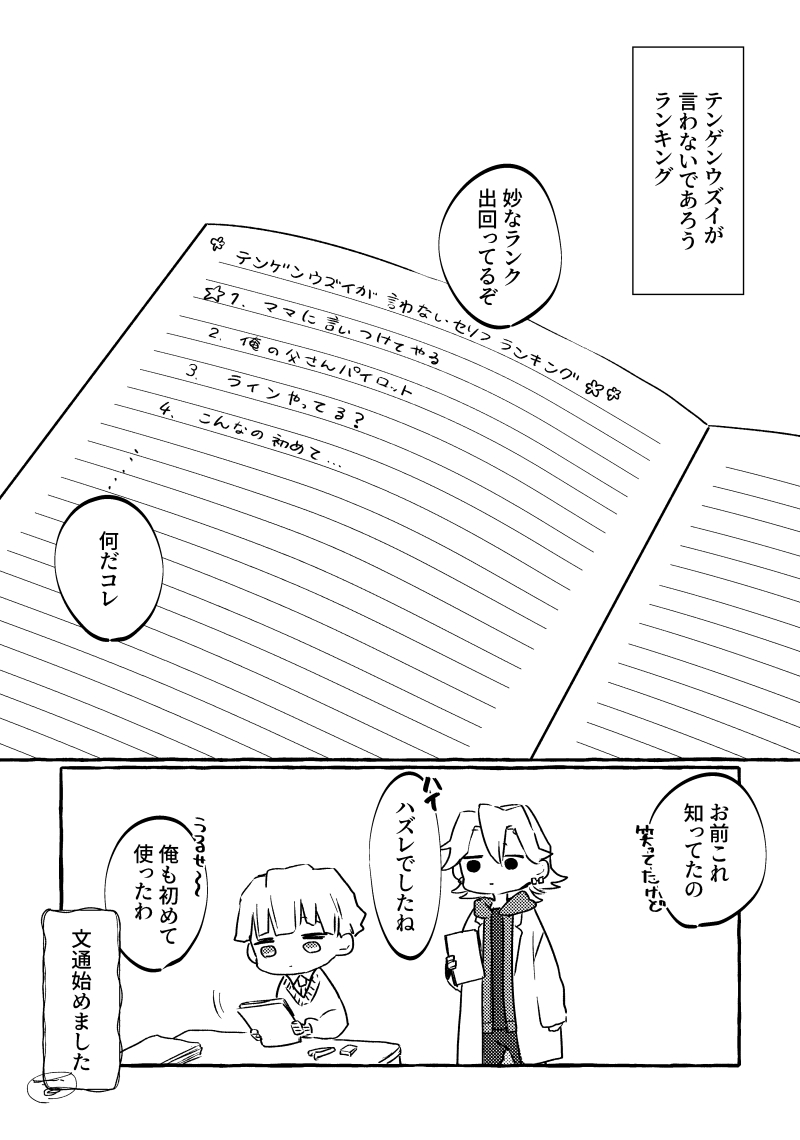 テンゲンウズイが
言わないであろう
ランキング
妙なランク
出回ってるぞ
テンゲンウズイが 言わないセリフ ランキング
☆1. ママに言いつけてやる
2. 俺の父さんパイロット
3. ラインやってる?
4. こんなの初めて…
何だコレ
お前これ
知ってたの
笑ってたけど
ハイ
ハズレでしたね
うるせ〜〜
俺も初めて
使ったわ
文通始めました